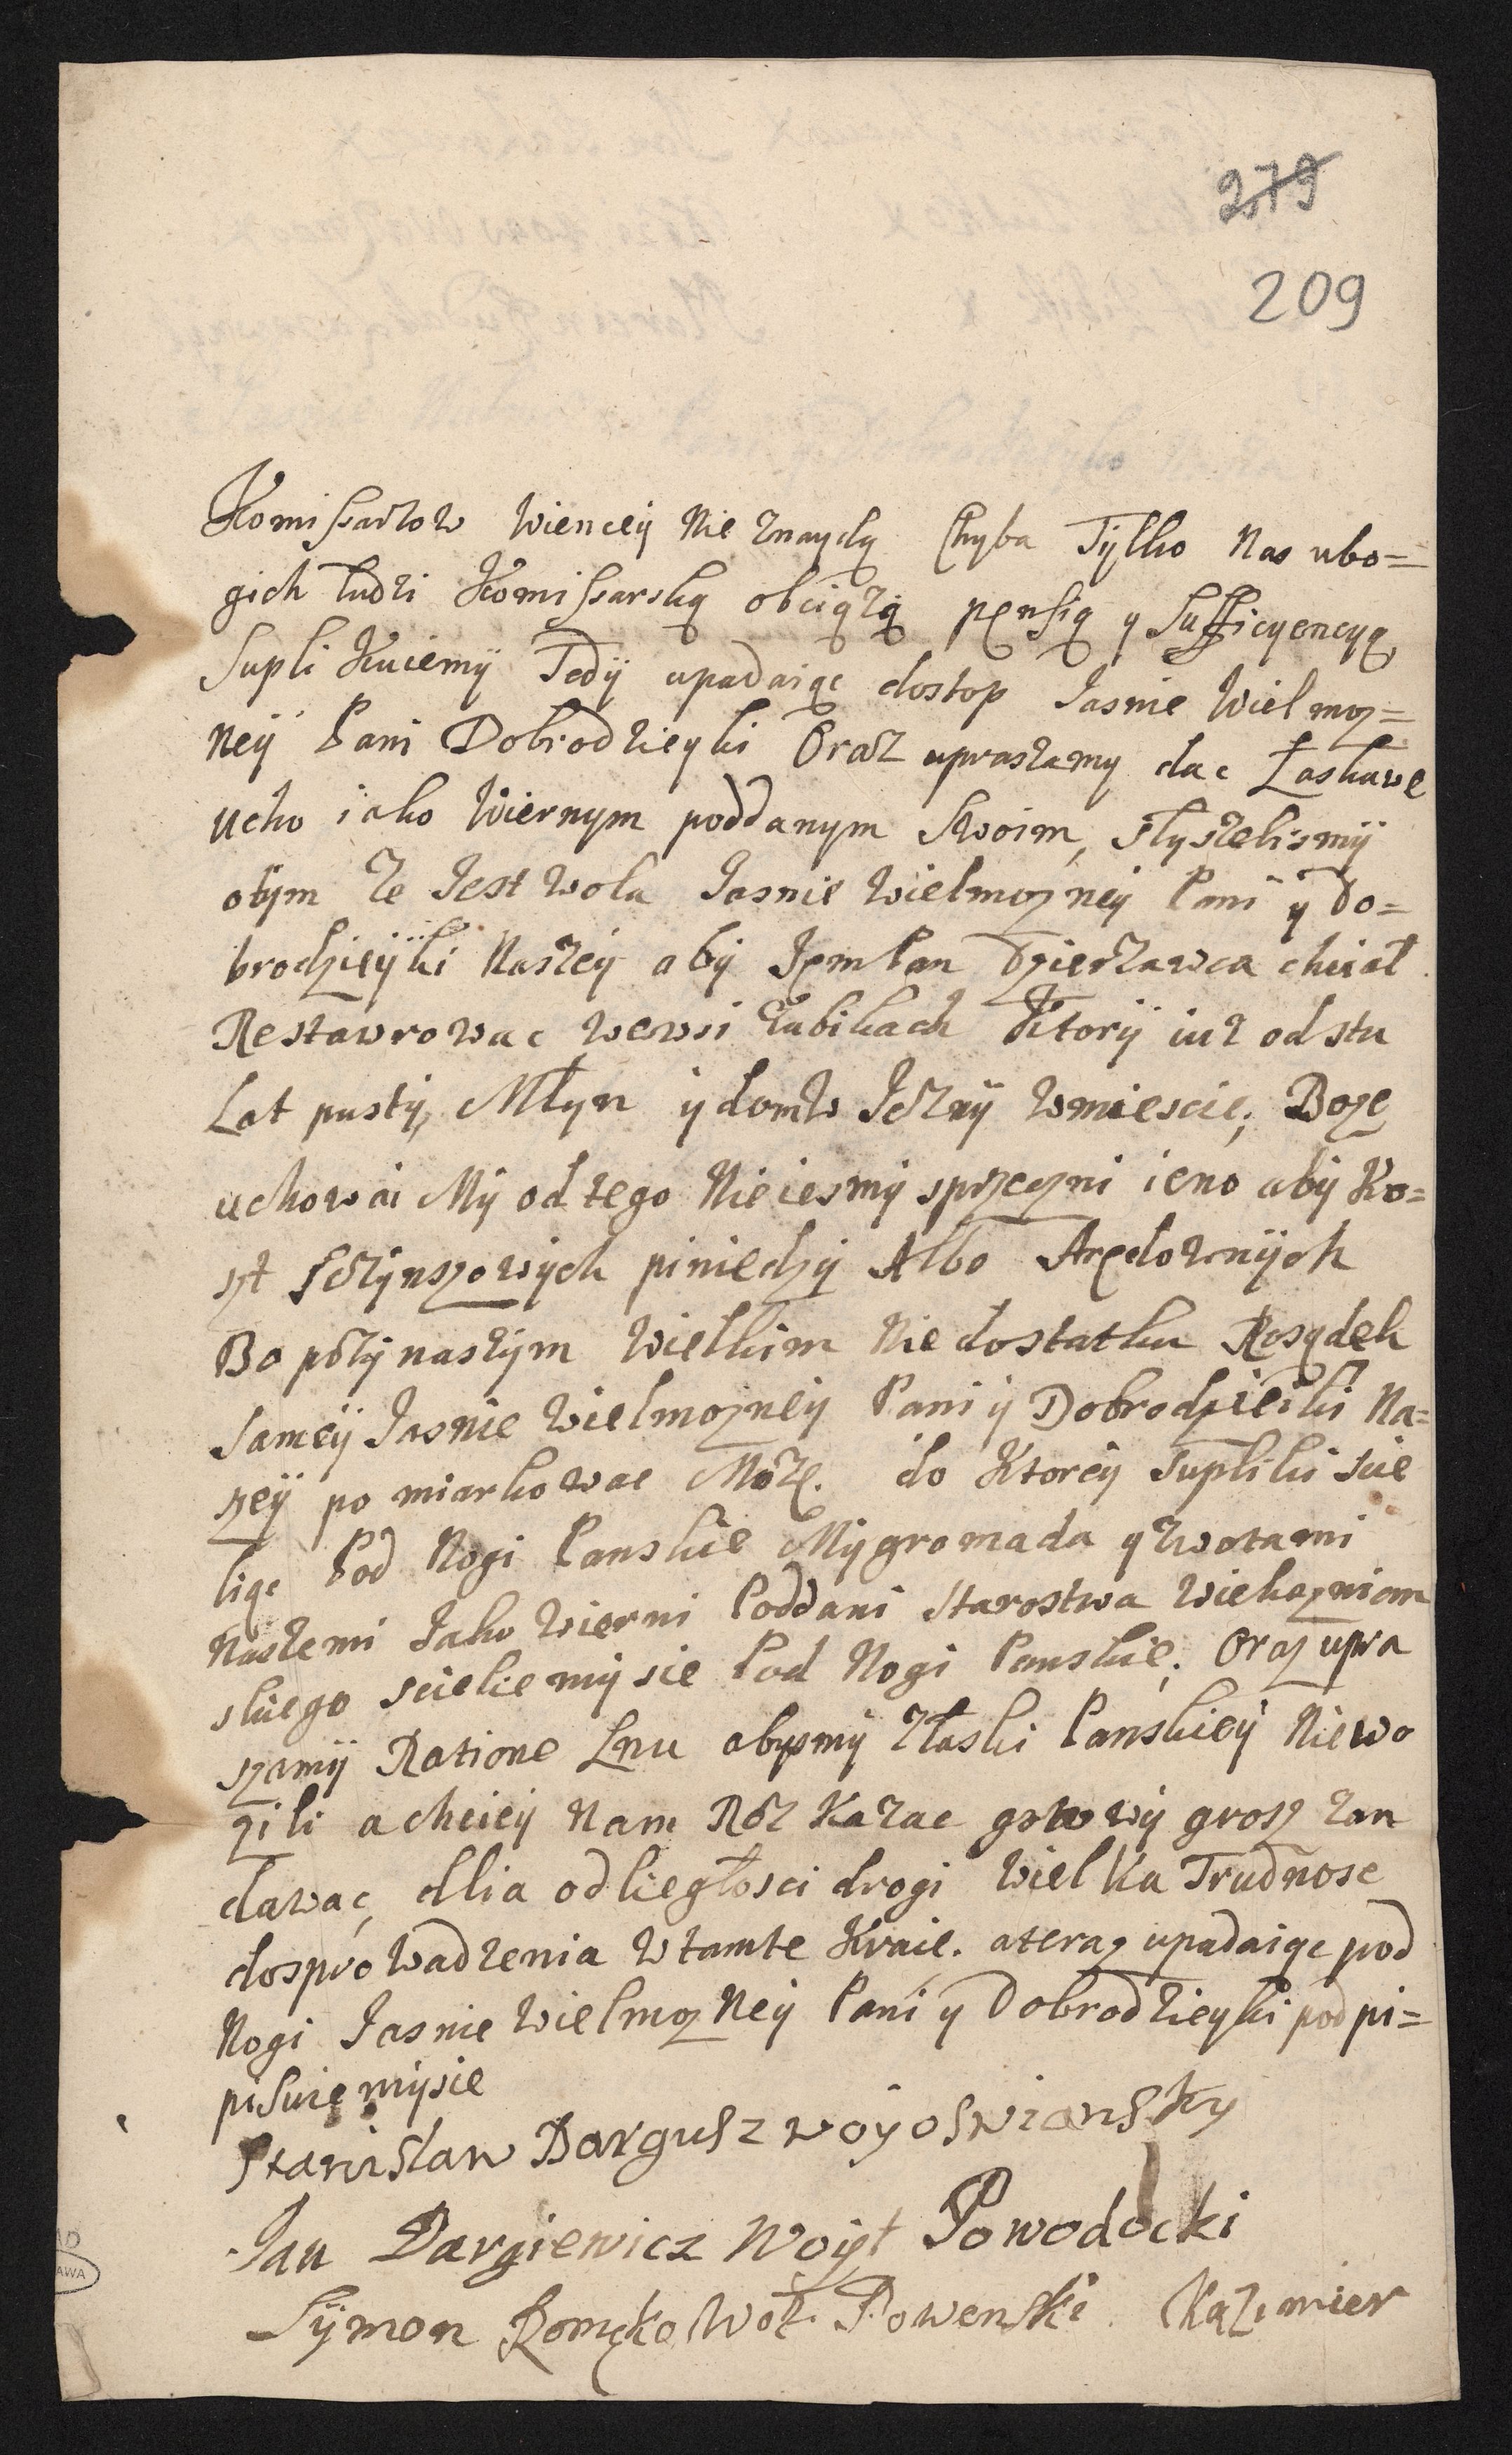 279
209
Komissarzow wiencey nie znaydą Chyba Tylko nas ubo=
gich ludzi Komissarską obciązą pęnsią y Sufficyencyą
Supli Kuiemy Tedy upadaiąc dostop Jasnie Wielmoz=
ney Pani Dobrodzieyki Oraz upraszamy dac Łaskawe
ucho iako Wiernym poddanym Swoim, słyszelismy
otym ze Jest wola Jasnie Wielmozney Pani y Do=
brodzieyki Naszey aby Jęm Pan Dzierzawca chciał
Restawrowac wewsi Łubikach Ktory iuz od stu
Lat pusty, Młyn y domk Jezny wmiescie, Boze
uchowai My od tego Nie iesmy sprzeczni ieno aby Ko=
szt szczynszowych piniedzy Albo Arędownych
Bo przy naszym wielkim Nie dostatku Rosądek
Samey Jasnie Wielmozney Pani y Dobrodzieiki Na=
szey po miarkowac Moze. do Ktorey Supliki scie
ląc Pod Nogi Panskie My gromada y zwotami
Naszemi Jako Wierni Poddani Starostwa Wieksznian
skiego scielemy sie Pod Nogi Panskie, Oraz upra
szamy Ratione Lnu abysmy złaski Panskiey Niewo
zili a chciey Nam Roz Kazac gotowy grosz zan
dawac, dlia odliegłosci drogi wielka Trudnosc
dosprowadzenia w tamte Kraie. a teraz upadaiąc pod
Nogi Jasnie Wielmozney Pani y Dobrodzieyki podpi=
pisuiemysie
Stanisław Dargusz woyoswiansky
Jan Dargiewicz Woyt Powodocki
Symon Romcko Wot. Powenski. Kazimier